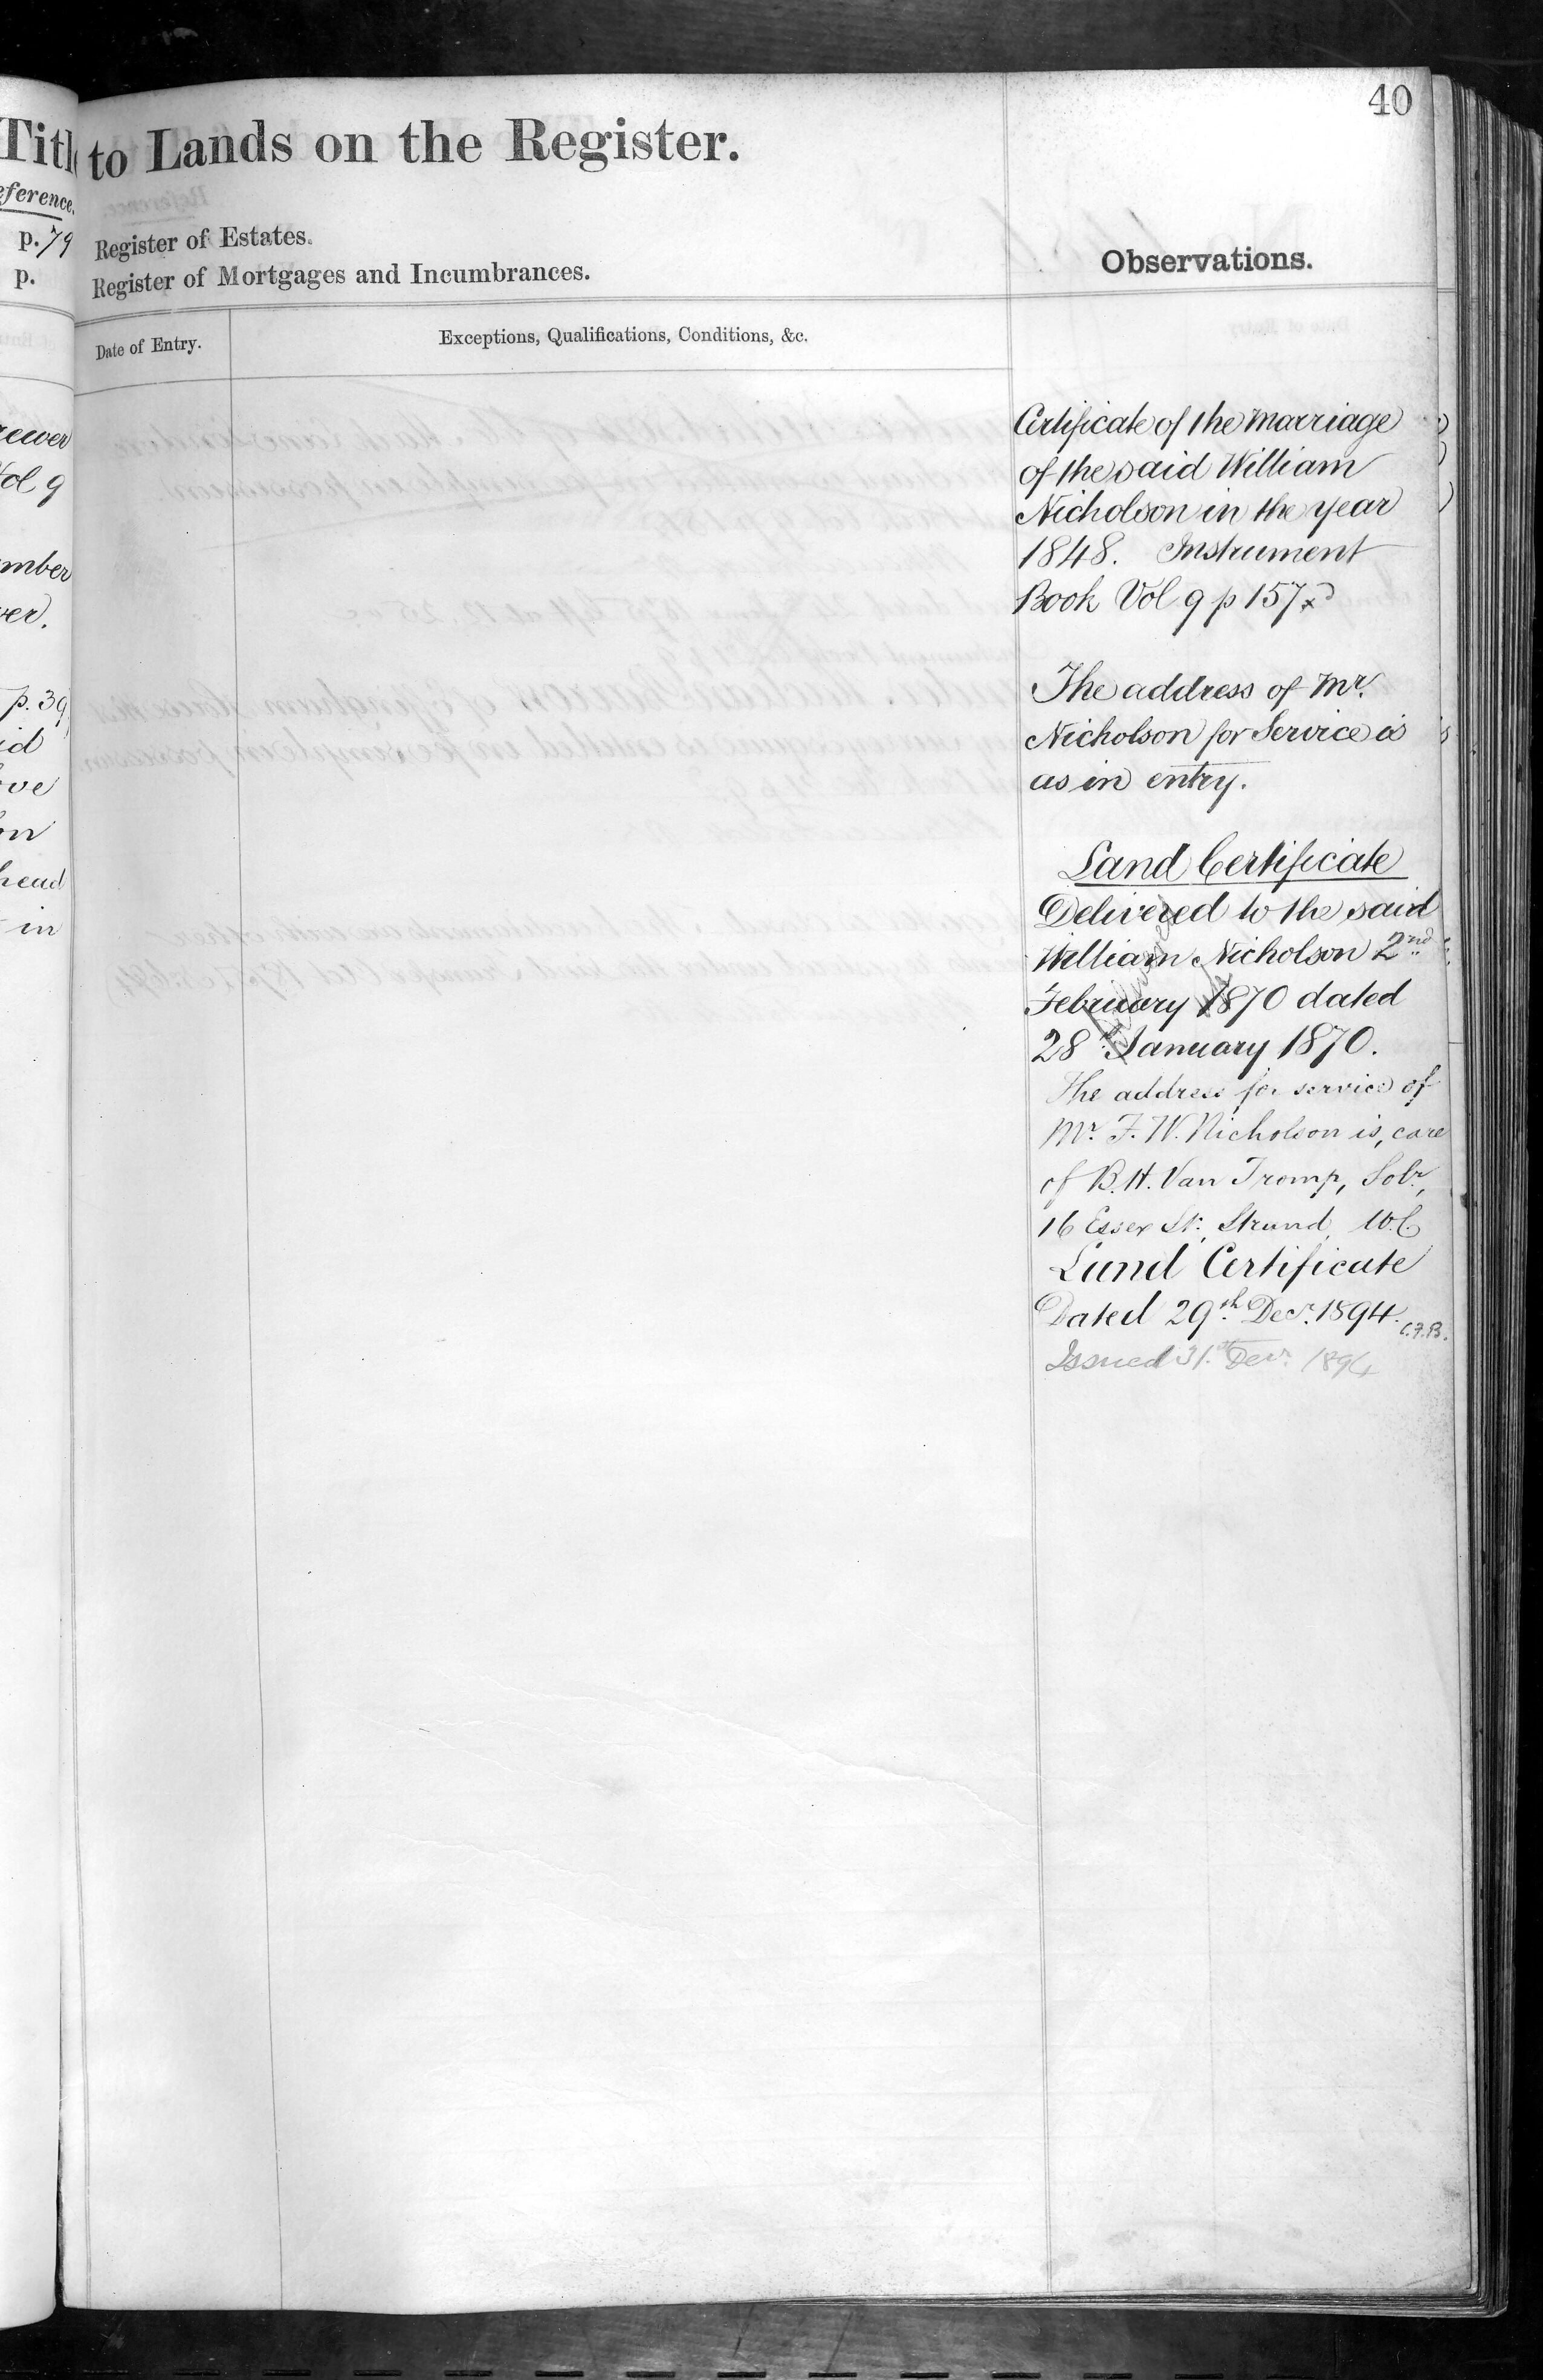 40
Title
to Lands on the Register.
eference.
p. 79
p.
Register of Estates.
Register of Mortgages and Incumbrances.
Observations.
Date of Entry.
Exceptions, Qualifications, Conditions, &c.
rewer
Vol 9
mber
ver.
p. 39
id
ove
on
head
in
Certificate of the Marriage
of the said William
Nicholson in the year
1848. Instrument
Book Vol 9 p 157
The address of Mr.
Nicholson for Service is
as in entry.
Land Certificate
Delivered to the said
William Nicholson 2nd
February 1870 dated
28th January 1870.
The address for service of
Mr. F. W. Nicholson is, care
of B. H. Van Tromp, Solr.,
16 Essex St., Strand, W.C.
Land Certificate
Dated 29th Decr. 1894.
C.F.B.
Issued 31st Decr. 1894